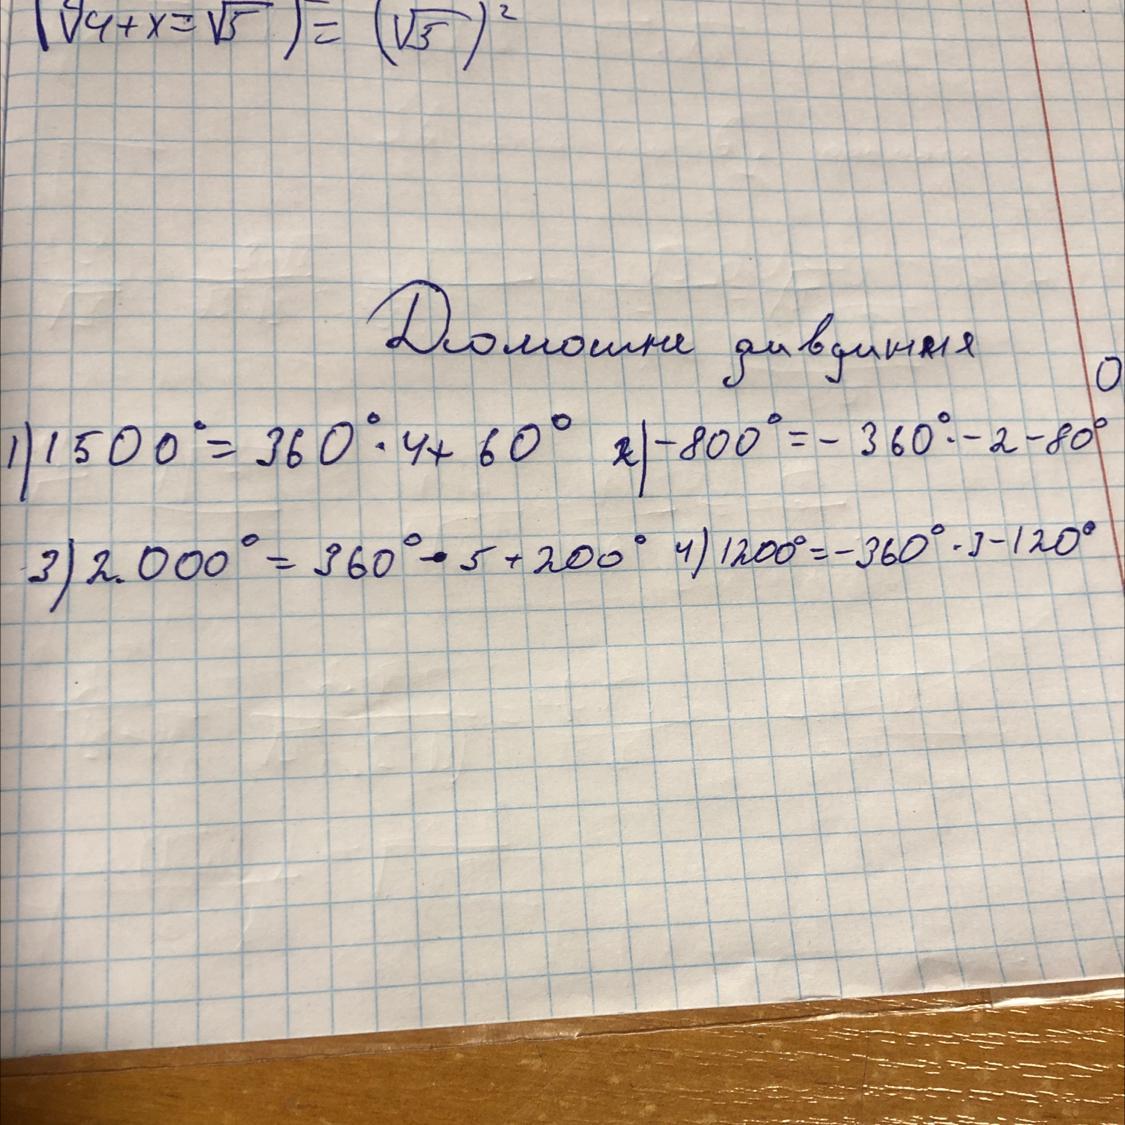 (√4+x=√5)= (√5)²
Домошне
0
1) 1500°= 360°·4+ 60° 2) -800°=- 360°·-2-80°
3) 2.000°= 360°·5+200° 4) 1200°=-360°·3-120°